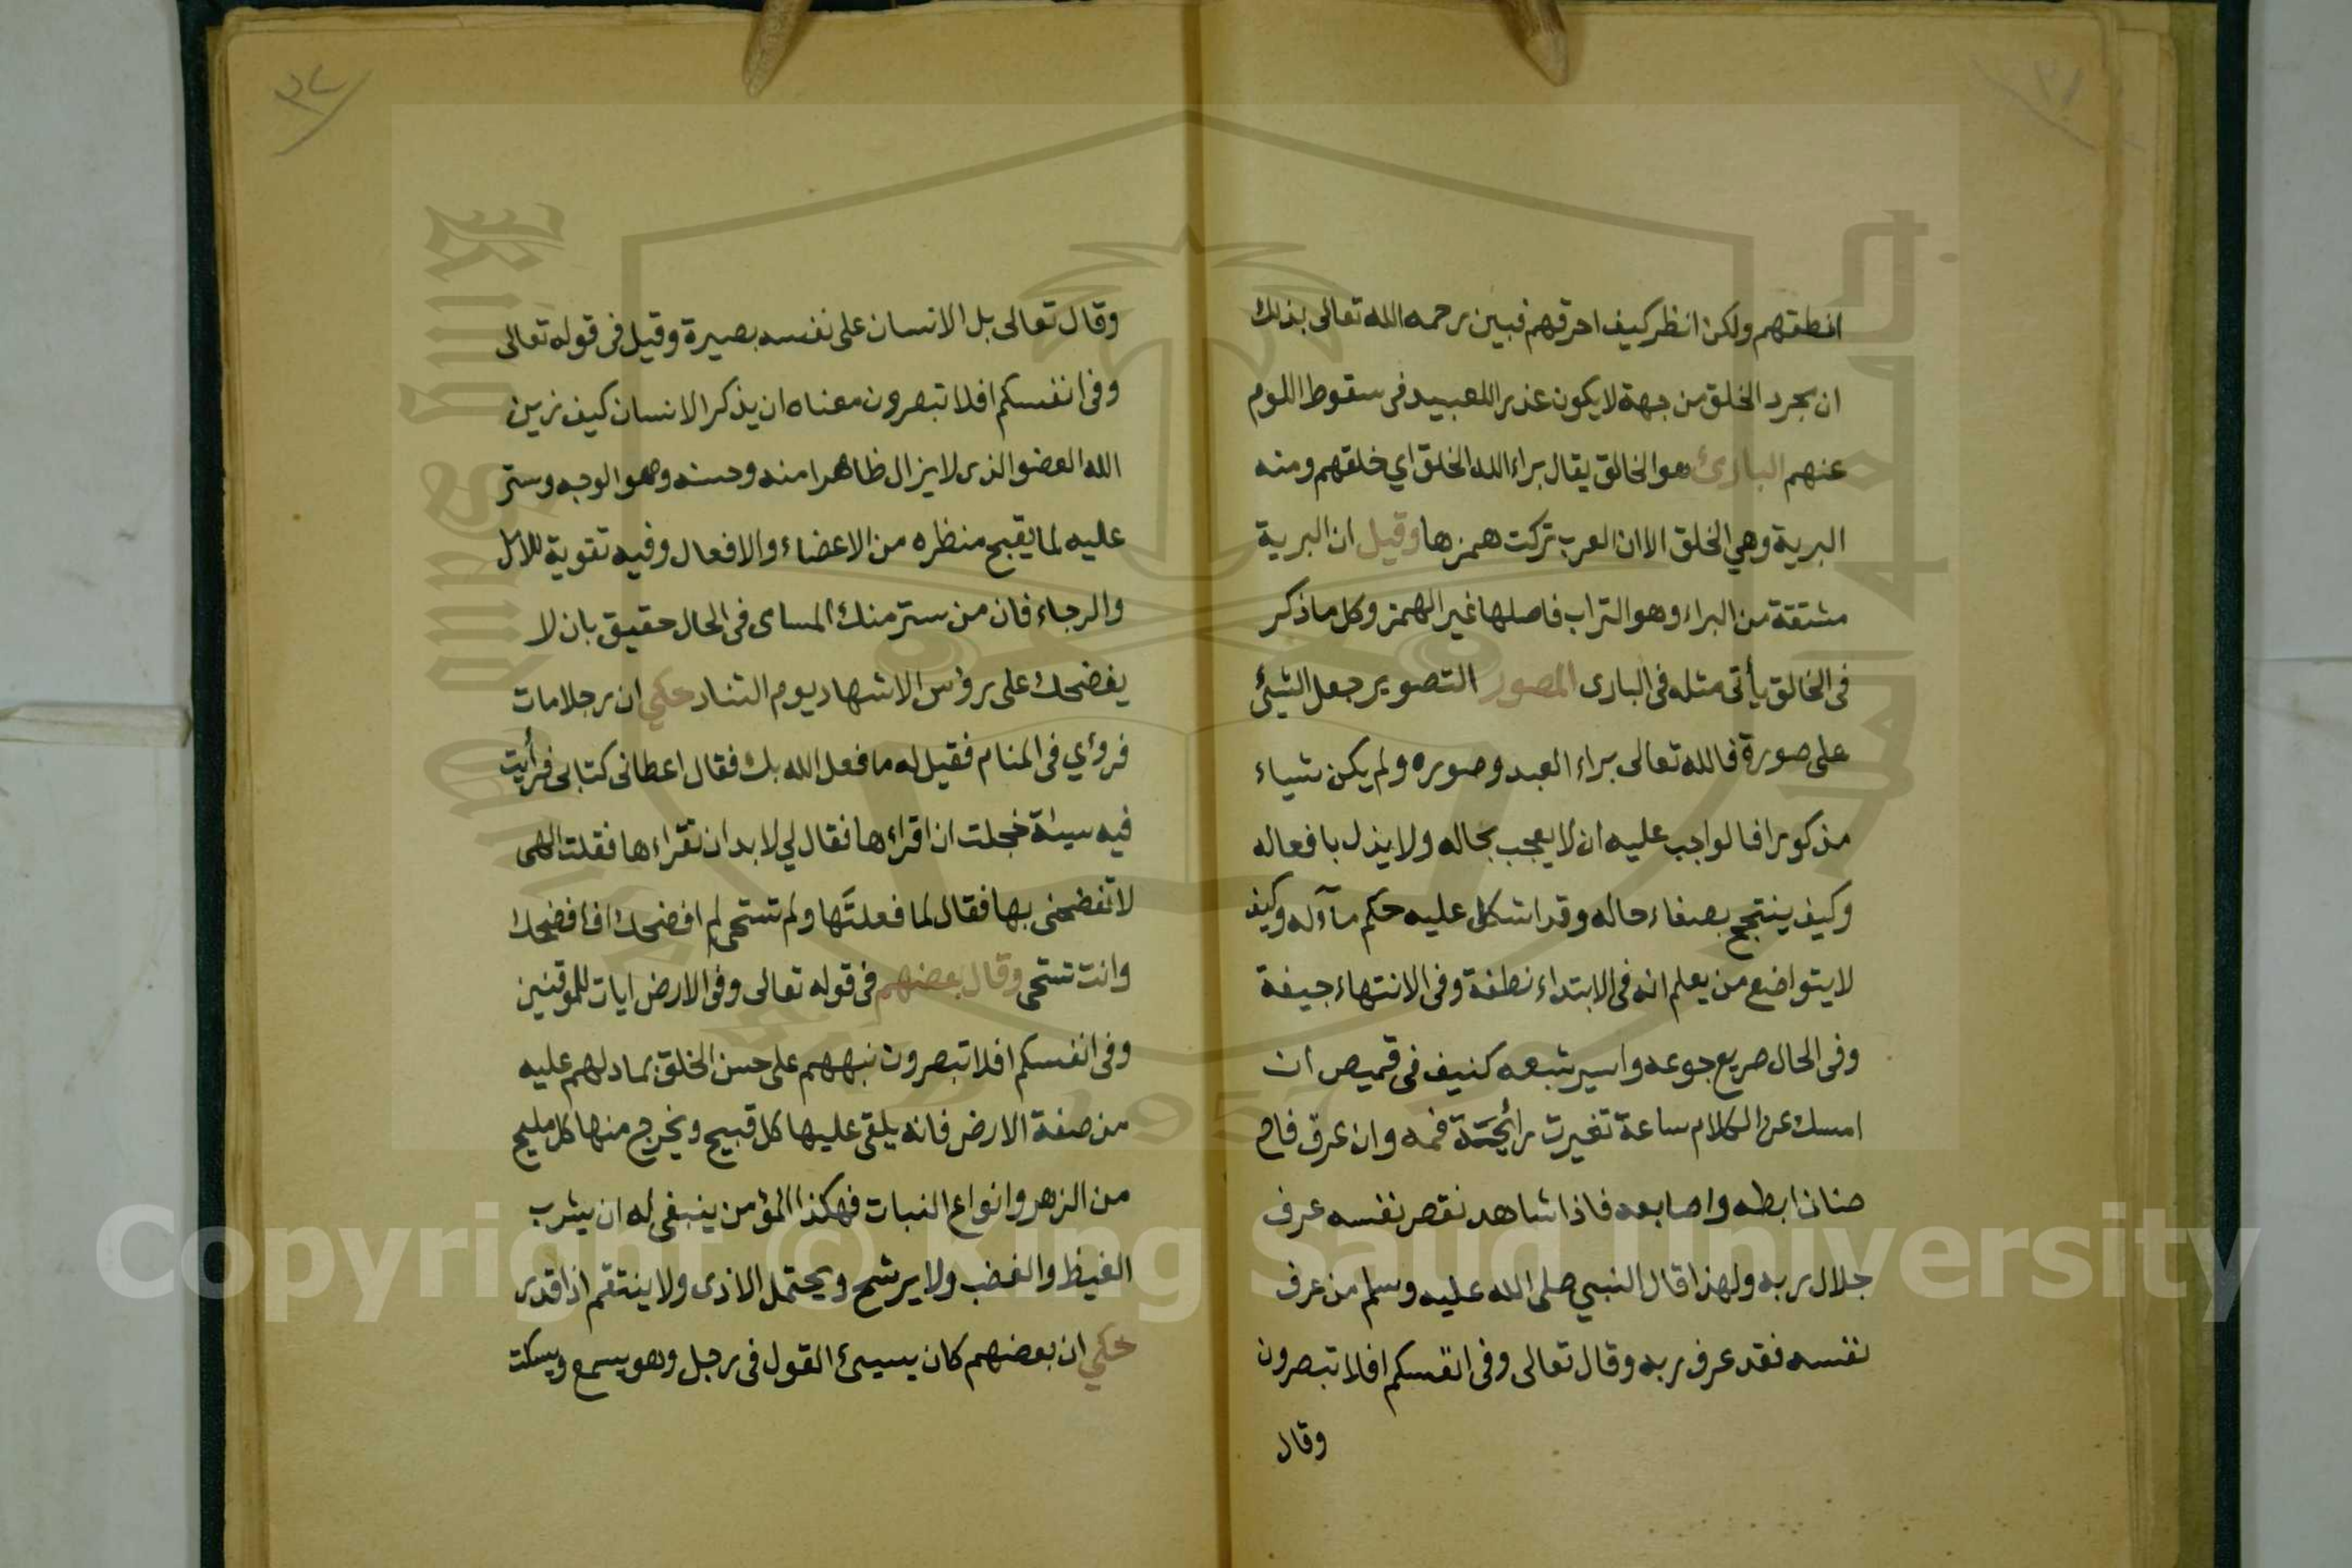 انطقتهم ولكن انظر كيف احرقهم فبين رحمه الله تعالى بذلك
ان مجرد الخلق من جهة لا يكون عذرا للعبيد فى سقوط اللوم
عنهم البارئ هو الخالق يقال براء الله الخلق اي خلقهم ومنه
البرية وهي الخلق الا ان العرب تركت همزها وقيل ان البرية
مشتقة من البراء وهو التراب فاصلها غير الهمز وكل ما ذكر
فى الخالق يأتى مثله فى البارى المصور التصوير جعل الشيئ
على صورة فالله تعالى براء العبد وصوره ولم يكن شياء
مذكورا فالواجب عليه ان لا يعجب بحاله ولا يذل بافعاله
وكيف يبتجح بصفاء حاله وقد اشكل عليه حكم مآله وكيف
لا يتواضع من يعلم انه فى الابتداء نطفة وفى الانتهاء جيفة
وفى الحال صريع جوعه واسير شبعه كنيف فى قميص ان
امسك عن الكلام ساعة تغيرت رائحة فمه وان عرق فاح
صنان ابطه واصابعه فاذا شاهد نقص نفسه عرف
جلال ربه ولهذا قال النبي صلى الله عليه وسلم من عرف
نفسه فقد عرف ربه وقال تعالى وفى انفسكم افلا تبصرون
وقال
٣٢
وقال تعالى بل الانسان على نفسه بصيرة وقيل فى قوله تعالى
وفى انفسكم افلا تبصرون معناه ان يذكر الانسان كيف زين
الله العضو الذى لا يزال ظاهرا منه وحسنه وهو الوجه وستر
عليه لما يقبح منظره من الاعضاء والافعال وفيه تقوية للامل
والرجاء فان من ستر منك المساى فى الحال حقيق بان لا
يفضحك على رؤس الاشهاد يوم التناد حكي ان رجلا مات
فروءي فى المنام فقيل له ما فعل الله بك فقال اعطانى كتابى فرأيت
فيه سيئة فخجلت ان اقراءها فقال لي لا بد ان تقراءها فقلت الهى
لا تفضحنى بها فقال لما فعلتها ولم تستحى لم افضحك افافضحك
وانت تستحى وقال بعضهم فى قوله تعالى وفى الارض ايات للموقنين
وفى انفسكم افلا تبصرون نبههم على حسن الخلق بما دلهم عليه
من صفة الارض فانه يلقى عليها كل قبيح ويخرج منها كل مليح
من الزهر وانواع النبات فهكذا المؤمن ينبغى له ان يشرب
الغيظ والغضب ولا يرشح ويحتمل الاذى ولا ينتقم اذا قدر
حكي ان بعضهم كان يسيئ القول فى رجل وهو يسمع ويسكت
Copyright © King Saud University
1957